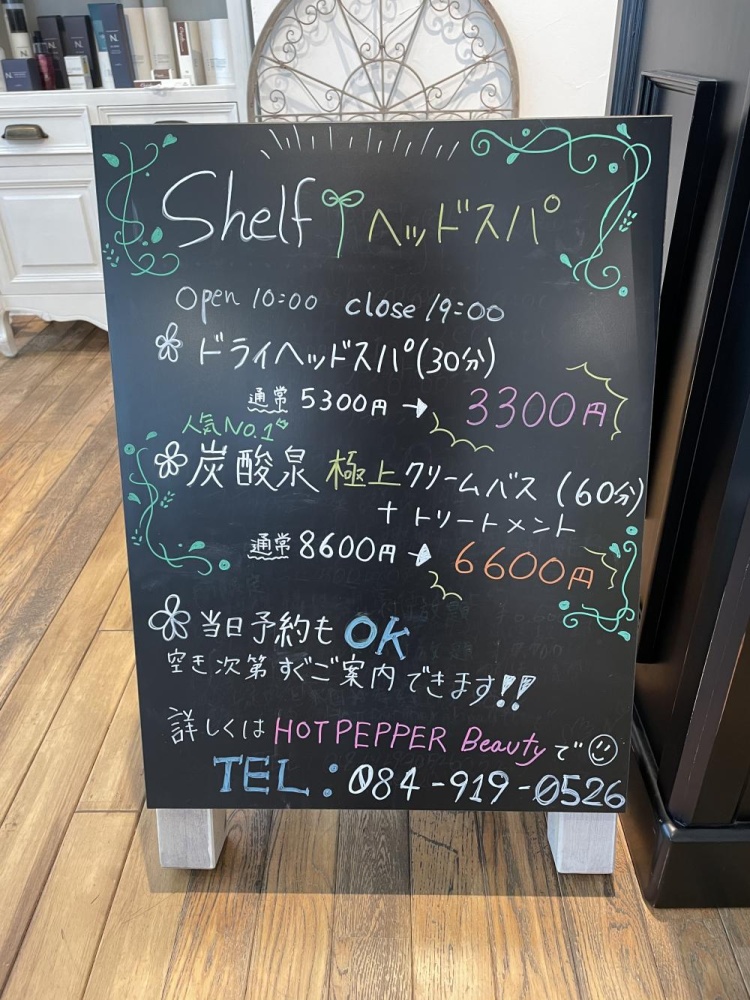 Shelf ヘッドスパ
open 10:00 close 19:00
ドライヘッドスパ(30分)
通常 5300円 → 3300円
人気No.1
炭酸泉 極上クリームバス (60分)
+トリートメント
通常 8600円 → 6600円
当日予約も OK
空き次第すぐご案内できます!!
詳しくは HOT PEPPER Beautyで
TEL:084-919-0526